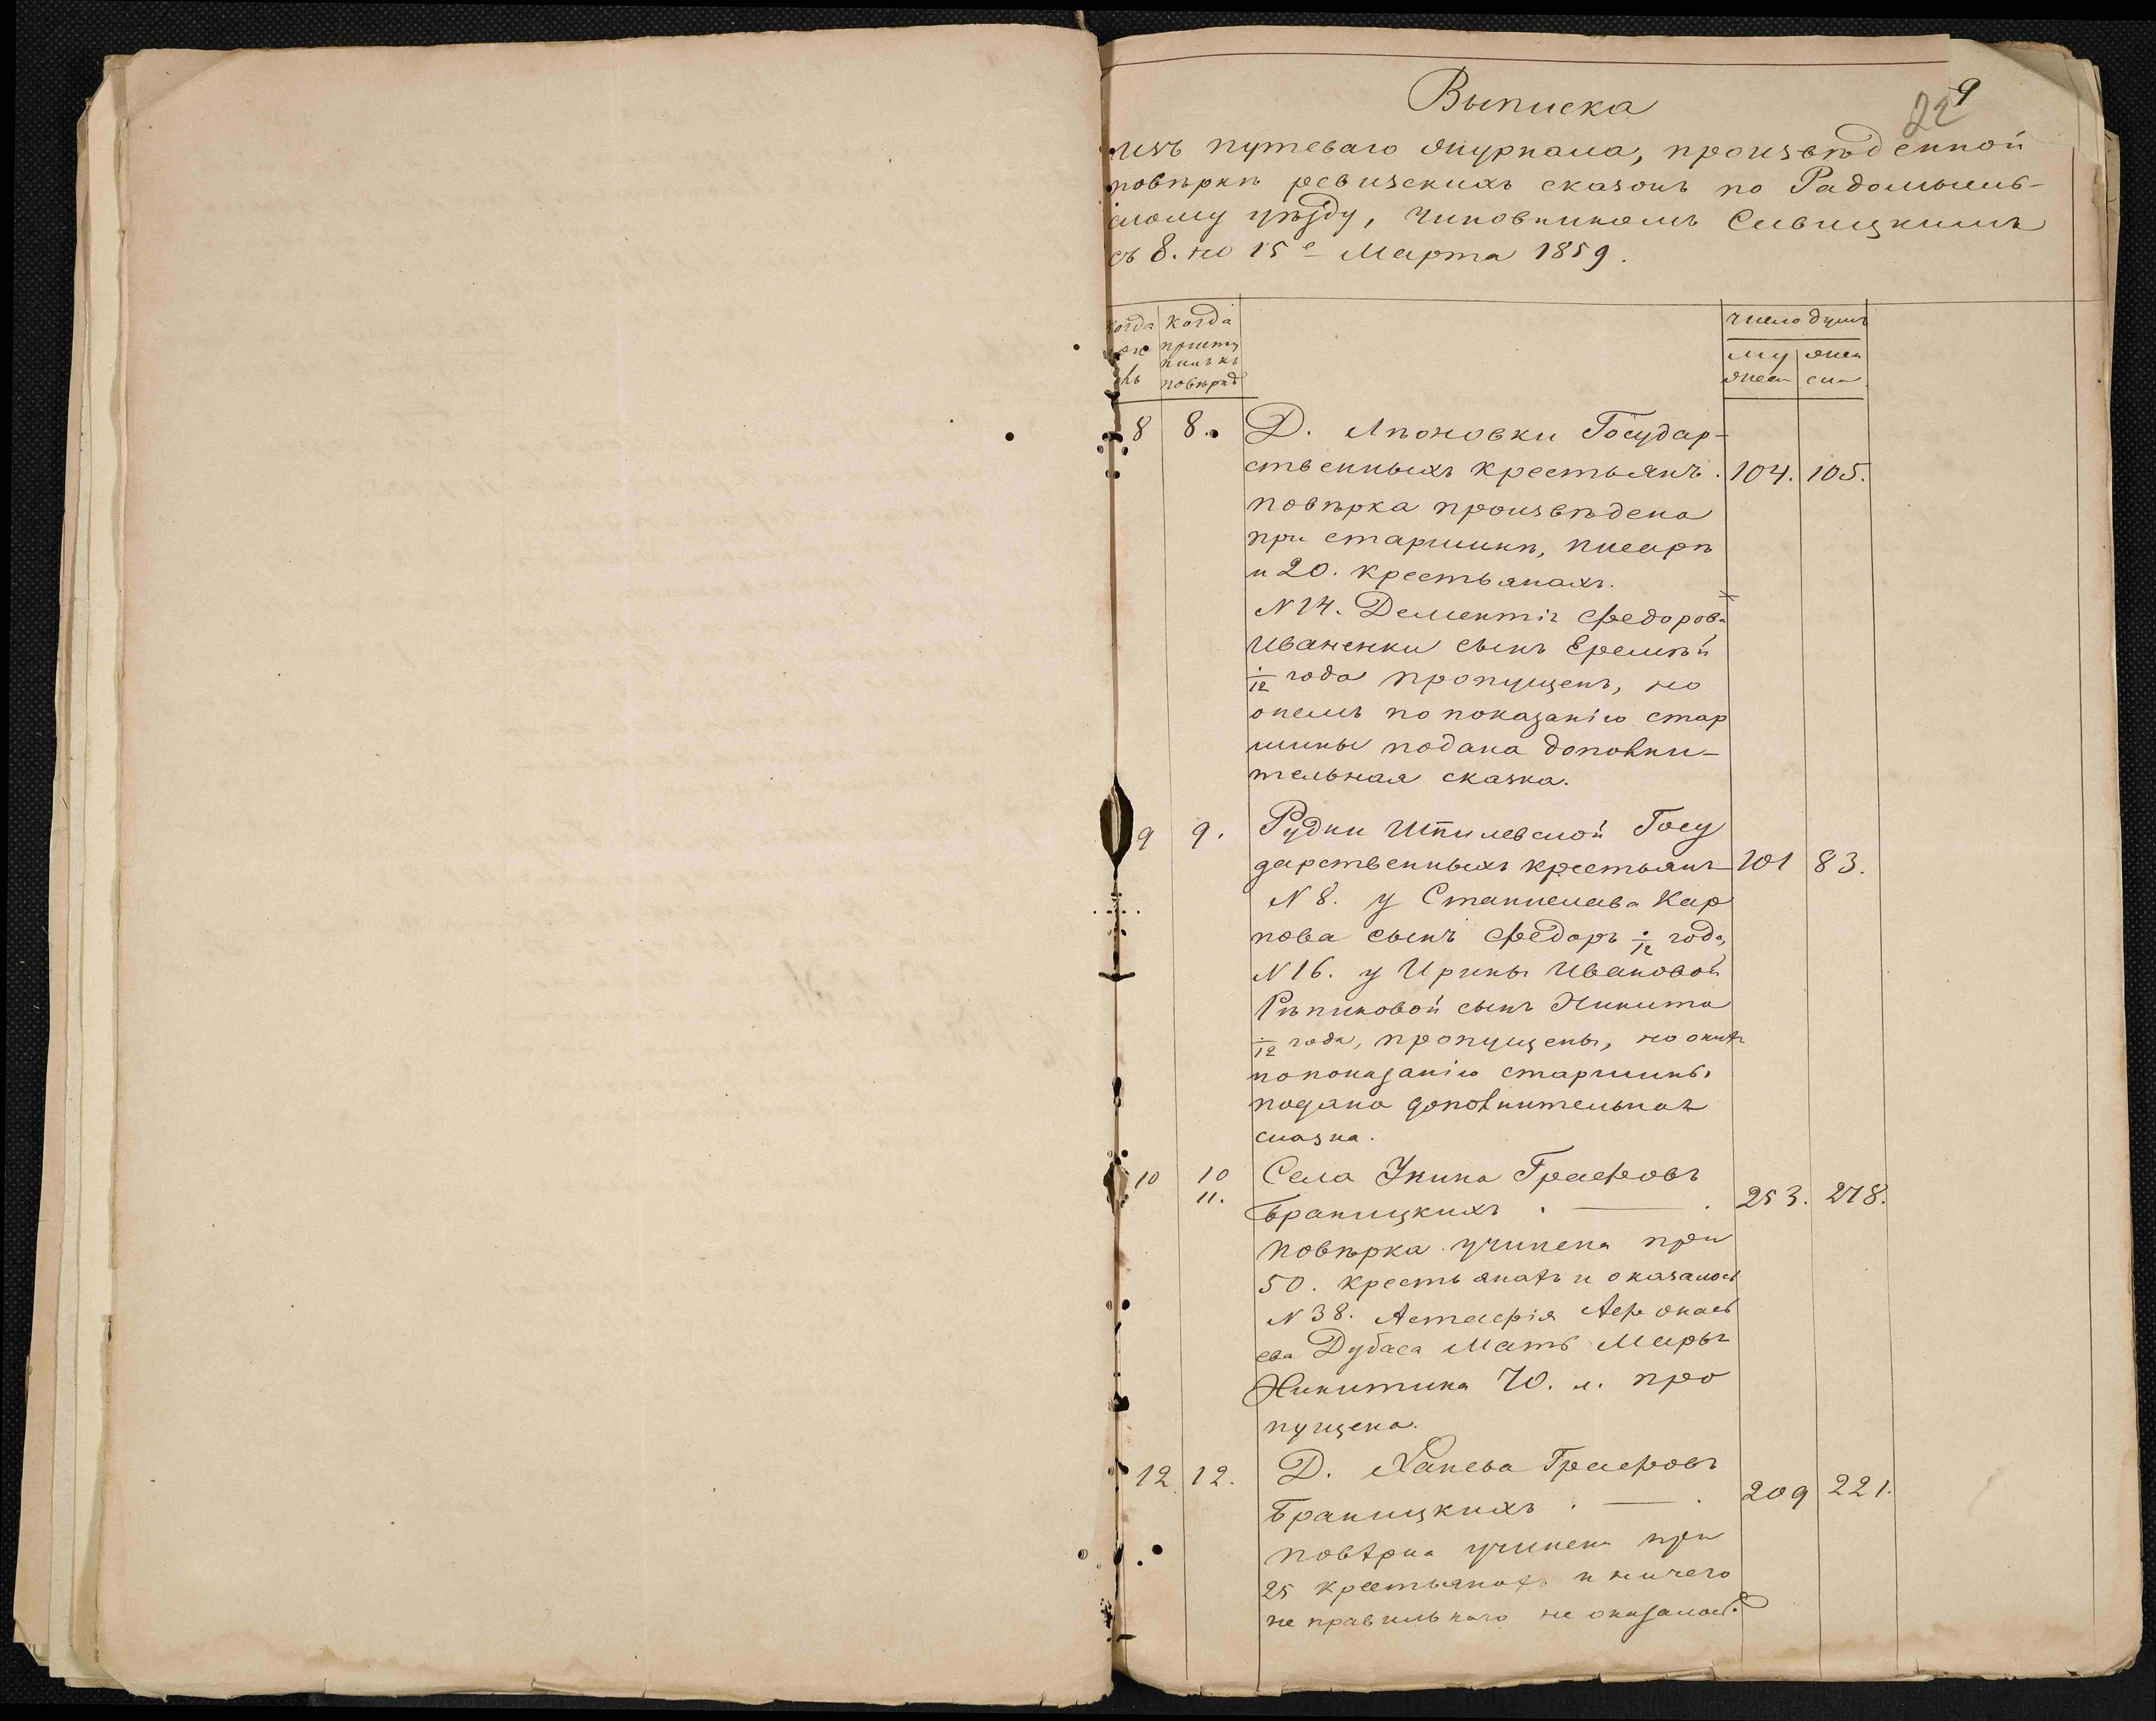 Выписка
9
22
изъ путеваго журнала, произвѣденной
повѣркѣ ревизскихъ сказокъ по Радомысль-
скому уѣзду, чиновникомъ Сивицкимъ
съ 8. по 15е Марта 1859.
когда когда
присту
пилъ къ
повѣркѣ
число душъ
му жен
жеск ска
8 8. Д. Государ-
ственныхъ крестьянъ. 104. 105.
повѣрка произвѣдена
при старшинѣ, писарѣ
и 20. крестьянахъ.
N 14. Дементія Федорова
Иваненки сынъ Еремѣй
/12 года пропущенъ, но
о немъ по показанію стар
шины подана дополни-
тельная сказка.
9 9. Рудни Шпилевской Госу
дарственныхъ крестьянъ 101 83.
N 8. у Станислава Кар
пова сынъ Федоръ /12 года,
N 16. у Ирины Ивановой
Рѣпиковой сынъ Никита
/12 года, пропущены, но о нихъ
по показанію старшины
подана дополнительная
сказка.
10 10 Села Унина Графовъ
11. Браницкихъ . 253. 278.
повѣрка учинена при
50. крестьянахъ и оказалось
N 38. Астафія Афонась
ева Дубаса мать Марья
Никитина 70. л. про
пущена.
12 12. Д. Ханева Графовъ
Браницкихъ . 209 221.
повѣрка учинена при
25 крестьянахъ и ничего
не правильнаго не оказалось.